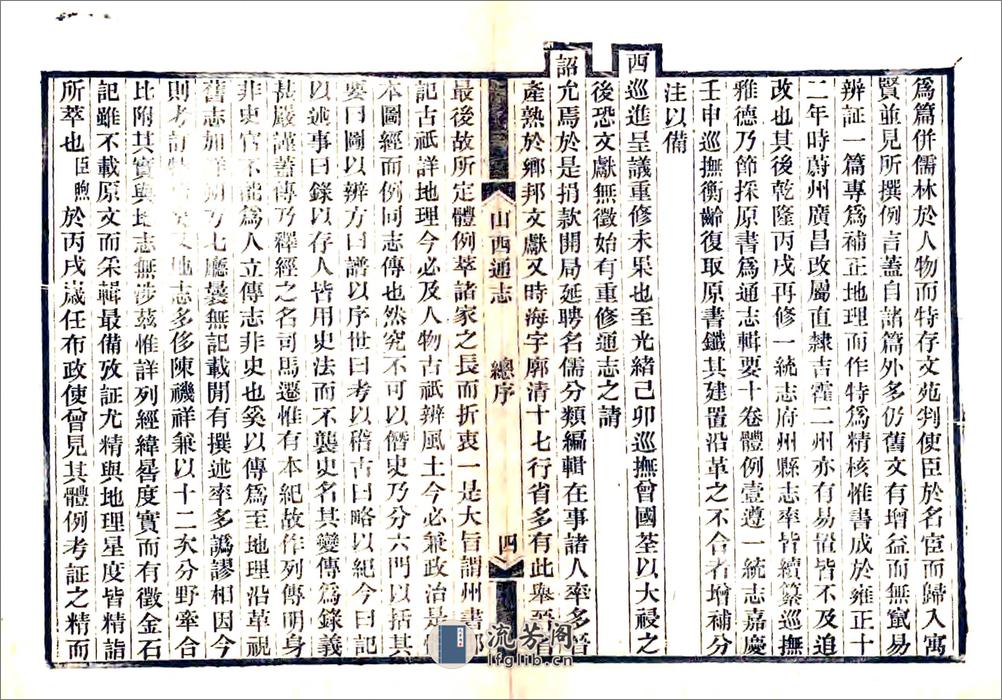 爲篇併儒林於人物而特存文苑判使臣於名宦而歸入寓
賢並見所撰例言蓋自諸篇外多仍舊文有增益而無竄易
辨証一篇專爲補正地理而作特爲精核惟書成於雍正十
二年時蔚州廣昌改屬直隸吉霍二州亦有易置皆不及追
改也其後乾隆丙戌再修一統志府州縣志率皆續纂巡撫
雅德乃節採原書爲通志輯要十卷體例壹遵一統志嘉慶
壬申巡撫衡齡復取原書鐵其建置沿革之不合者增補分
注以備
西巡進呈議重修未果也至光緒己卯巡撫曾國荃以大祲之
後恐文獻無徵始有重修通志之請
詔允焉於是捐款開局延聘名儒分類編輯在事諸人率多晉
產熟於鄉邦文獻又時海宇廓清十七行省多有此舉晉省
山西通志 總序 四
最後故所定體例萃諸家之長而折衷一是大旨謂州書郡
記古祇詳地理今必及人物古祇辨風土今必兼政治是
本圖經而例同志傳也然究不可以僭史乃分六門以括其
要曰圖以辨方曰譜以序世曰考以稽古曰略以紀今曰記
以述事曰錄以存人皆用史法而不襲史名其變傳爲錄義
甚嚴謹蓋傳乃釋經之名司馬遷惟有本紀故作列傳明身
非史官不當爲人立傳志非史也奚以傳爲至地理沿革視
舊志加詳朔方七廳曩無記載閒有撰述率多譌謬相因今
則考訂特地志多侈陳禨祥兼以十二次分野牽合
比附其實與地志無涉茲惟詳列經緯晷度實而有徵金石
記雖不載原文而采輯最備攷証尤精與地理星度皆精詣
所萃也臣煦於丙戌歲任布政使曾見其體例考証之精而
流芳閣
lfglib.cn